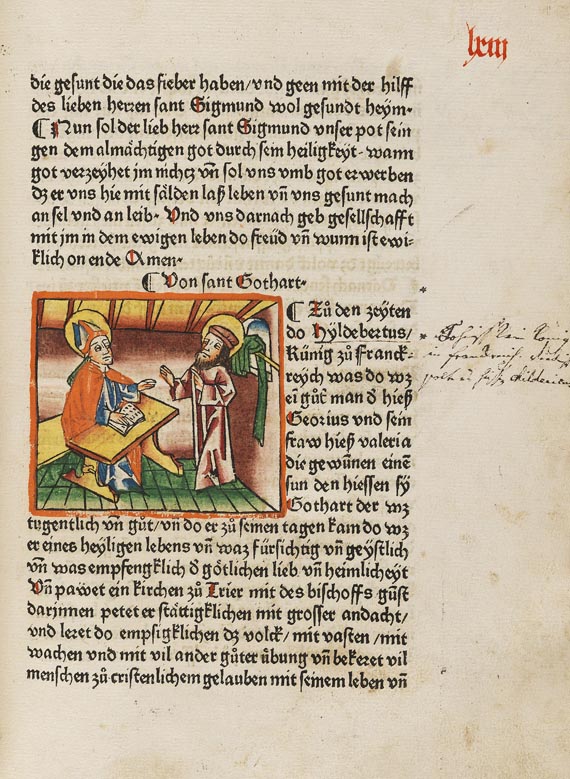 lxiii
die gesunt die das fieber haben/vnd geen mit der hilff
des lieben herren sant Sigmund wol gesundt heym·
¶ Nun sol der lieb herꝛ sant Sigmund vnser pot sein
gen dem almåchtigen got durch sein heiligkeyt· wann
got verzeyhet jm nichtz vn̄ sol vns vmb got erwerben
dz er vns hie mit sålden laß leben vn̄ vns gesunt mach
an sel vnd an leib· Vnd vns darnach geb gesellschafft
mit jm in dem ewigen leben do freüd vn̄ wunn ist ewi-
klich on ende Amen·
¶ Von sant Gothart·
¶ Zů den zeyten
do Hyldebertus/
Künig zů Franck-
reych was do wz
ei gůt man d hieß
Georius vnd sein
fraw hieß valeria
die gewunen einē
sun den hiessen sy
Gothart der wz
tugentlich vn̄ gůt/vn̄ do er zů seinen tagen kam do wz
er eines heyligen lebens vn̄ waz fürsichtig vn̄ geystlich
vn̄ was empfengklich d götlichen lieb vn̄ heimlicheyt
Vn̄ pawet ein kirchen zů Trier mit des bischoffs gůst
darjnnen petet er ståttigklichen mit grosser andacht/
vnd leret do empsigklichen dz volck/mit vasten/mit
wachen vnd mit vil ander gůter übung vn̄ bekeret vil
menschen zů cristenlichem gelauben mit seinem leben vn̄